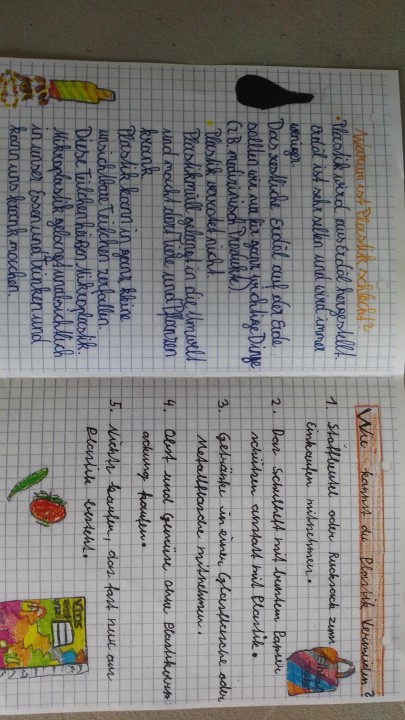 Warum ist Plastik schlecht?
• Plastik wird aus Erdöl hergestellt.
Erdöl ist sehr selten und wird immer
weniger.
Das restliche Erdöl auf der Erde
sollten wir nur für ganz wichtige Dinge
(z.B. medizinisch Produkte)
• Plastik verrottet nicht.
Plastikmüll gelangt in die Umwelt
und macht dort Tiere und Pflanzen
krank
Plastik kann in ganz kleine
unsichtbare Teilchen zerfallen.
Diese Teilchen heißen Mikroplastik.
Mikroplastik gelangt unabsichtlich
in unser Essen und Trinken und
kann uns krank machen.
Wie kannst du Plastik Vermeiden?
1. Stoffbeutel oder Rucksack zum
Einkaufen mitnehmen.
2. Das Schulheft mit buntem Papier
schützen anstatt mit Plastik.
3. Getränke in einer Glasflasche oder
Metallflasche mitnehmen.
4. Obst und Gemüse ohne Plastikverp-
ackung kaufen.
5. Nichts kaufen, das fast nur aus
Plastik besteht.